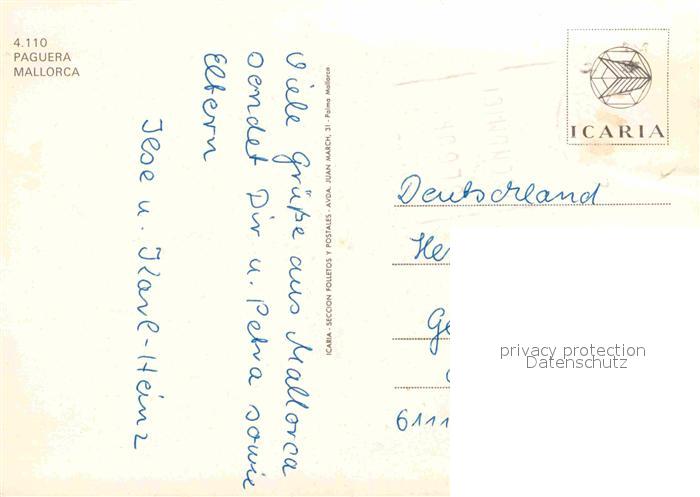 4.110
PAGUERA
MALLORCA
Viele Grüße aus Mallorca
sendet Dir u. Petra sowie
Eltern
Ilse u. Karl-Heinz
ICARIA - SECCION FOLLETOS Y POSTALES - AVDA. JUAN MARCH, 31 - Palma Mallorca
ICARIA
Deutschland
He
Ge
6111
privacy protection
Datenschutz